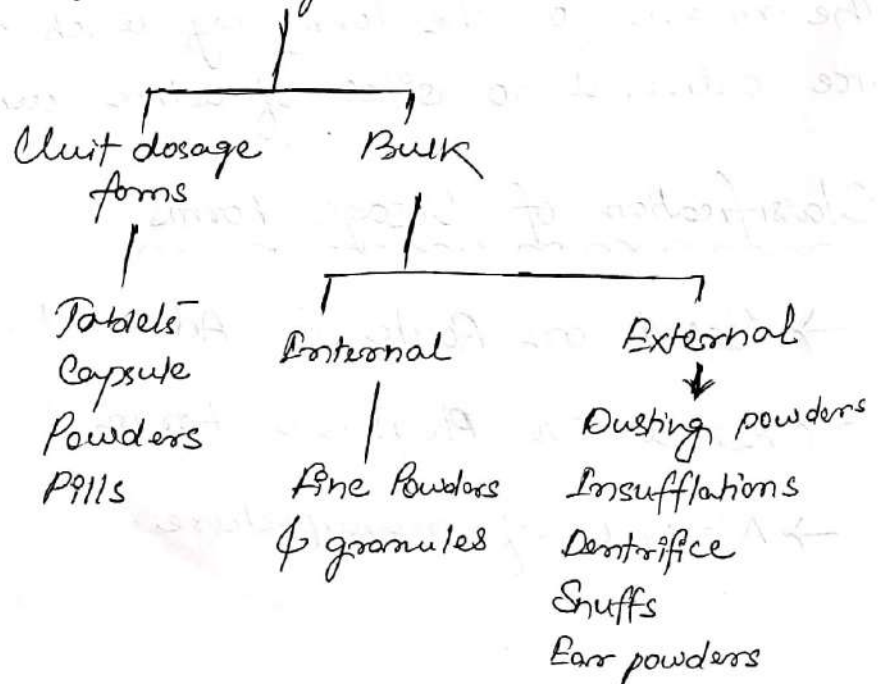 Unit dosage
foms
Bulk
Tablets
Capsule
Powders
Pills
Internal
Fine Powders
& granules
External
Dusting powders
Insufflations
Dentrifice
Snuffs
Ear powders